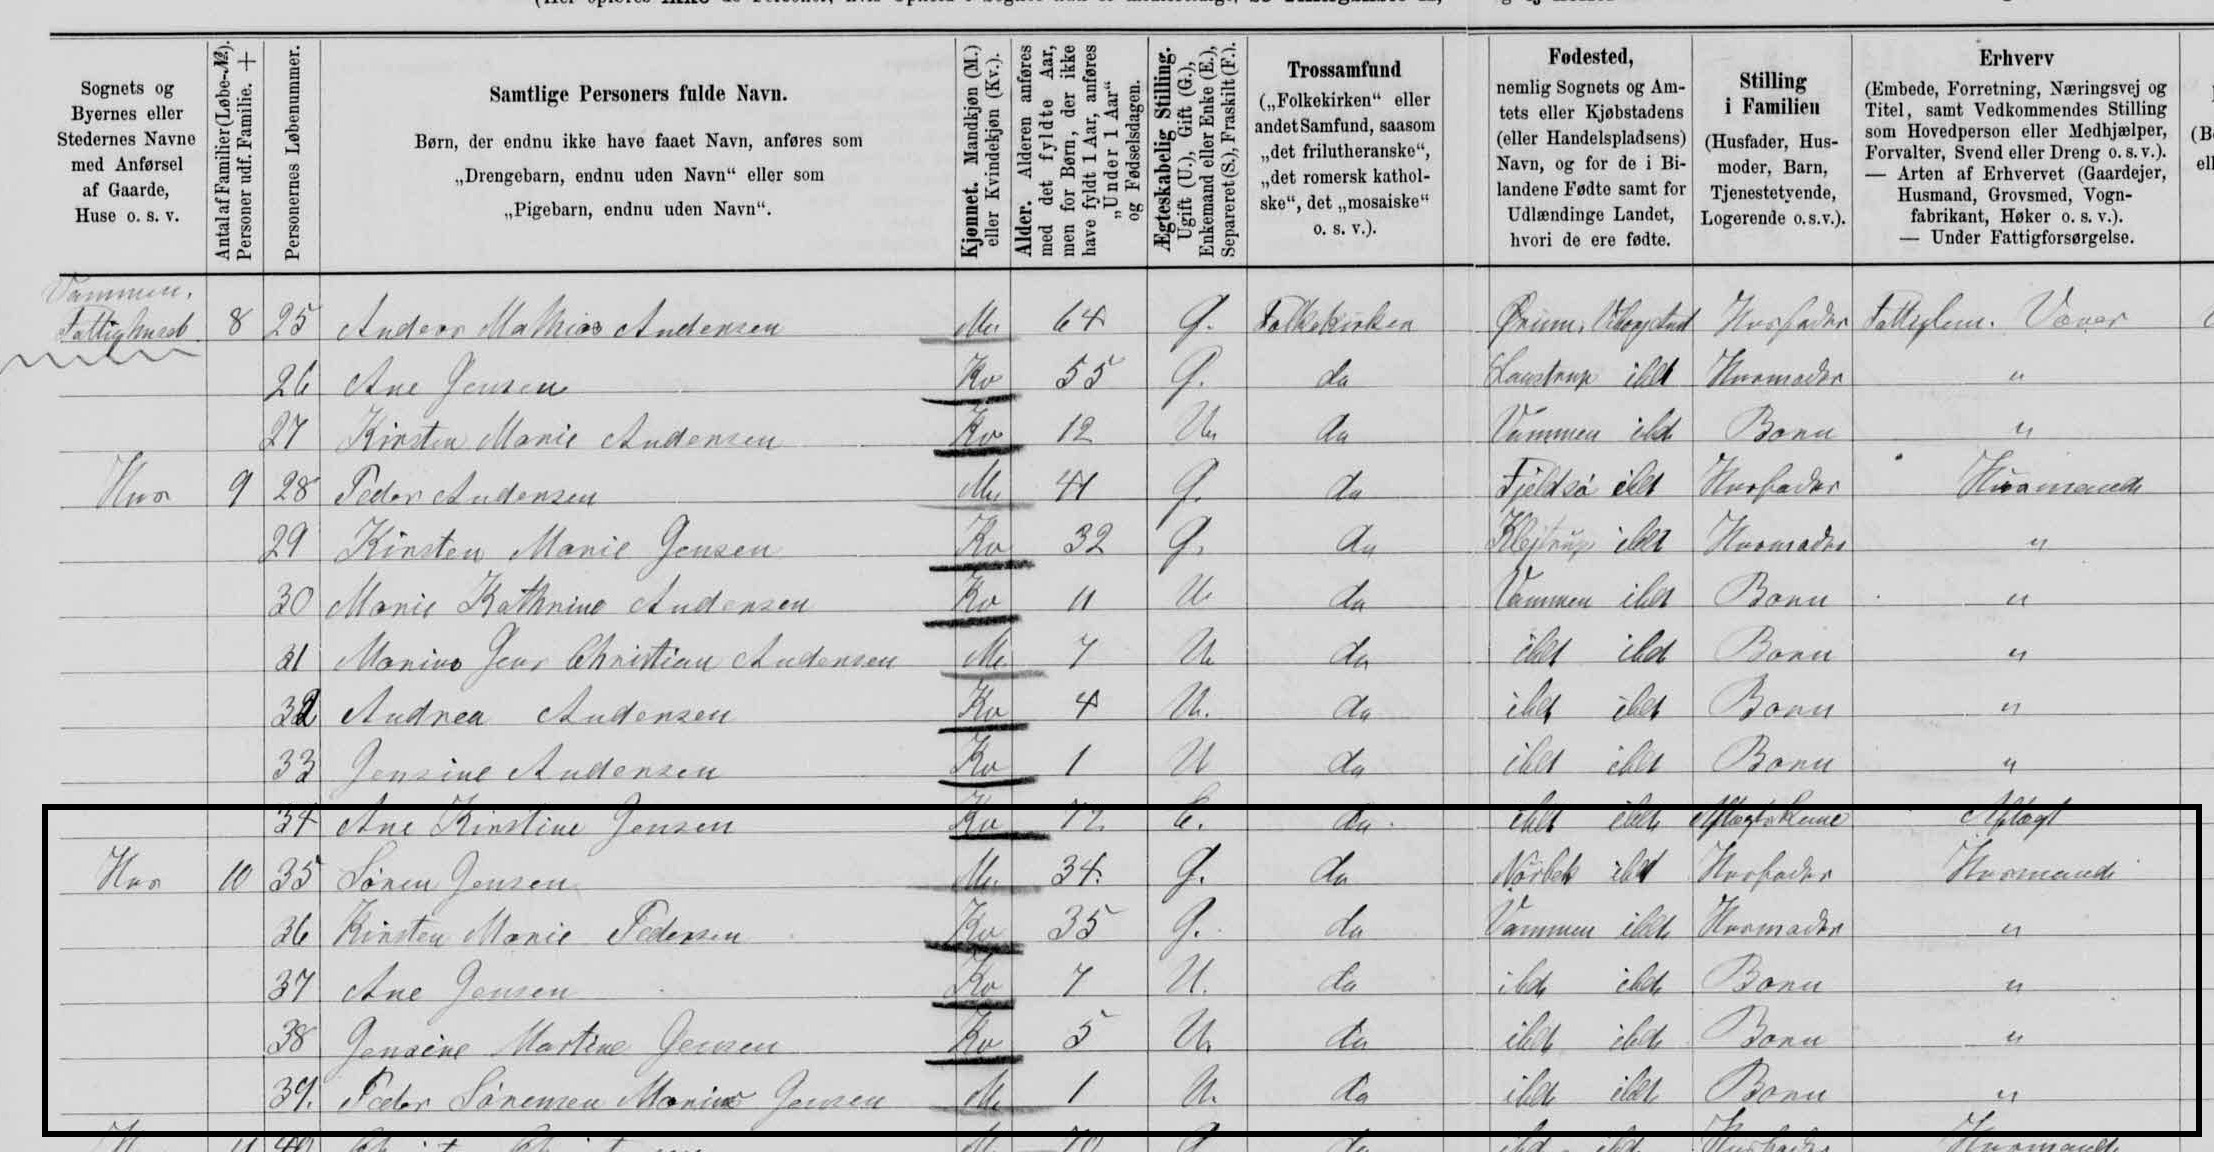 Sognets og Byernes eller Stedernes Navne med Anførsel af Gaarde, Huse o. s. v.
Antal af Familier (Løbe-№). Personer udf. Familie. +
Personernes Løbenummer.
Samtlige Personers fulde Navn.
Børn, der endnu ikke have faaet Navn, anføres som
„Drengebarn, endnu uden Navn“ eller som
„Pigebarn, endnu uden Navn“.
Kjønnet. Mandkjøn (M.) eller Kvindekjøn (Kv.).
Alder. Alderen anføres med det fyldte Aar, men for Børn, der ikke have fyldt 1 Aar, anføres „Under 1 Aar“ og Fødselsdagen.
Ægteskabelig Stilling. Ugift (U.), Gift (G.), Enkemand eller Enke (E.), Separeret (S.), Fraskilt (F.).
Trossamfund
(„Folkekirken“ eller andet Samfund, saasom „det frilutheranske“, „det romersk kathol-ske“, det „mosaiske“ o. s. v.).
Fødested,
nemlig Sognets og Am-tets eller Kjøbstadens (eller Handelspladsens) Navn, og for de i Bi-landene Fødte samt for Udlændinge Landet, hvori de ere fødte.
Stilling i Familien
(Husfader, Hus-moder, Barn, Tjenestetyende, Logerende o.s.v.).
Erhverv
(Embede, Forretning, Næringsvej og Titel, samt Vedkommendes Stilling som Hovedperson eller Medhjælper, Forvalter, Svend eller Dreng o. s. v.). — Arten af Erhvervet (Gaardejer, Husmand, Grovsmed, Vogn-fabrikant, Høker o. s. v.). — Under Fattigforsørgelse.
Vammen.
Fattighuset 8 25 Anders Mathias Andersen M. 64 G. Folkekirken Ørum, Husfader Fattiglem. Væver
26 Ane Jensen Kv 55 G. do ibd Husmoder "
27 Kirsten Marie Andersen Kv 12 U. do Vammen ibd Barn "
Hus 9 28 Peder Andersen M. 41 G. do Fjeldsø ibd Husfader Husmand
29 Kirsten Marie Jensen Kv 32 G. do Klejtrup ibd Husmoder "
30 Marie Kathrine Andersen Kv 11 U. do Vammen ibd Barn "
31 Marius Jens Christian Andersen M. 7 U. do ibd ibd Barn "
32 Andrea Andersen Kv 4 U. do ibd ibd Barn "
33 Jensine Andersen Kv 1 U do ibd ibd Barn "
34 Ane Kirstine Jensen Kv 72 E. do ibd ibd Aftægtskone Aftægt
Hus 10 35 Søren Jensen M. 34. G. do Nørbek ibd Husfader Husmand
36 Kirsten Marie Pedersen Kv 35 G. do Vammen ibd Husmoder "
37 Ane Jensen Kv 7 U. do ibd ibd Barn "
38 Jensine Martine Jensen Kv 5 U. do ibd ibd Barn "
39. Peder Sørensen Marius Jensen M. 1 U. do ibd ibd Barn "